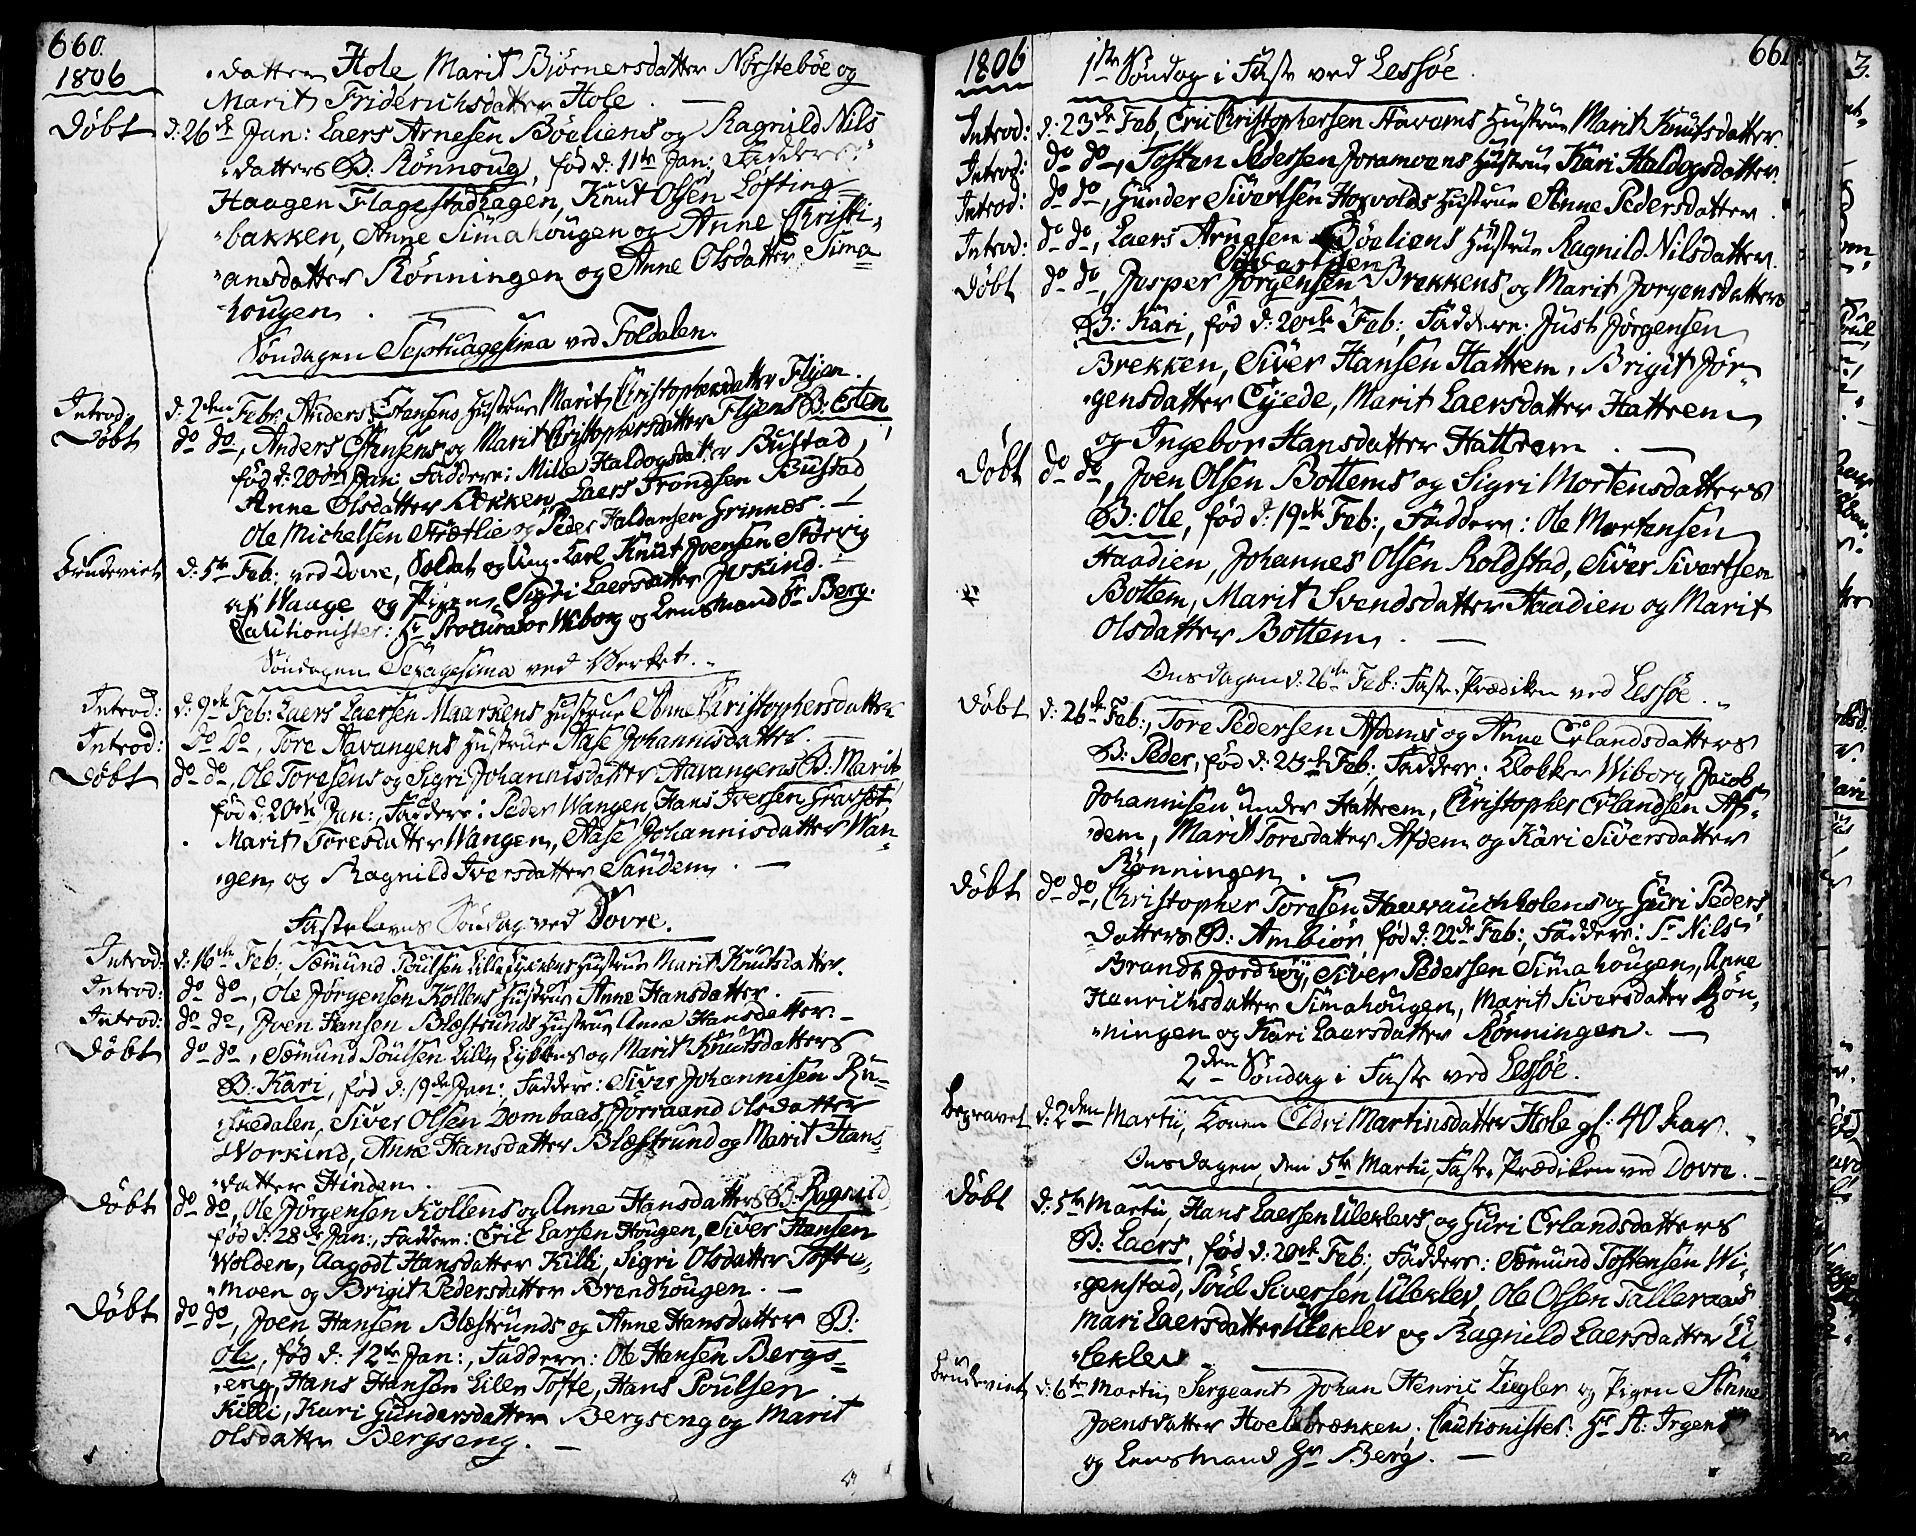 660.
1806
datter Hole Marit Bjørnersdatter Norstebøe og
Marit Friderichsdatter Hole. —
Døbt d: 26de Jan: Laers Arnesen Böeliens og Ragnild Nils
datters B: Rönnoug, fød d: 11te Jan: Faddere:
Haagen Flagestadhagen, Knut Olsen Løfting-
bakken, Anne Simahougen og Anne Christi-
ansdatter Rønningen og Anne Olsdatter Sima
hougen.
Søndagen Septuagesima ved Foldalen.
Introd: d: 2den Febr: Anders Estensens Hustrue Marit Christophersdatter Flyen.
Døbt do do, Anders Estensens og Marit Christophersdatter Flyens B: Esten,
fød d: 20de Jan: Faddere: Mille Haldogsdatter Bustad,
Anne Olsdatter Løkken, Laers Trondsen Bustad
Ole Michelsen Strætlie og Peder Haldansen Grinnæs. —
Brudeviet d: 5te Feb: ved Dovre, Soldat og Ung-Karl Knut Joensen Störvig
af Waage og Pigen Sigri Laersdatter Jerkind. —
Cautionister: Hr Procurator Wiborg og Lensmand Hr Berg.
Søndagen Sexagesima ved Verket.
Introd: d: 9de Feb: Laers Laersen Maarkens Hustrue Anne Christophersdatter
Introd: do do, Tore Aavangens Hustrue Aase Johannisdatter. —
Døbt do do, Ole Toresens og Sigri Johannisdatter Aavangens B: Marit
fød d: 20de Jan:, Faddere: Peder Wangen, Hans Iversen Gravset,
Marit Toresdatter Wangen, Aase Johannisdatter Wan-
gen og Ragnild Iversdatter Sandem. —
Fastelavns Søndag ved Dovre.
Introd: d: 16de Feb: Sæmund Poulsen Lille Lykkens Hustrue Marit Knutsdatter.
Introd: do do, Ole Jørgensen Kollens Hustrue Anne Hansdatter. —
Introd: do do, Joen Hansen Blæstrunds Hustrue Anne Hansdatter. —
Døbt do do, Sæmund Poulsen Lille Lykkens og Marit Knutsdatters
B: Kari, fød d: 19de Jan: Faddere: Siver Johannisen Ru-
skedalen, Siver Olsen Dombaas, Jørraand Olsdatter
Workind, Anne Hansdatter Blæstrund og Marit Hans-
datter Hinden.
Døbt do do, Ole Jørgensen Kollens og Anne Hansdatters B: Ragnild
fød d: 28de Jan:, Faddere: Eric Larsen Hougen, Siver Hansen
Wolden, Aagodt Hansdatter Killi, Sigri Olsdatter Tofte-
moen og Brigit Pedersdatter Brendhougen. —
Døbt do do, Joen Hansen Blæstrunds og Anne Hansdatter B:
Ole, fød d: 12te Jan:, Faddere: Ole Hansen Bergs-
eng, Hans Hansen Lille Tofte, Hans Poulsen
Killi, Kari Gundersdatter Bergseng og Marit
Olsdatter Bergseng. —
1806
661.
1ste Søndag i Faste ved Lessøe.
Introd: d: 23de Feb, Eric Christophersen Havams Hustrue Marit Knutsdatter.
Introd: do do, Tosten Pedersen Joramoens Hustrue Kari Haldogsdatter.
Introd: do do, Gunder Sivertsen Hosvolds Hustrue Anne Pedersdatter.
Introd: do do, Laers Arnesen Böeliens Hustrue Ragnild Nilsdatter.
Døbt do do, Jasper Jørgensen Brekkens og Marit Jorgensdatters
B: Kari, fød d: 20de Feb:, Faddere: Just Jørgensen
Brekken, Siver Hansen Hattrem, Brigit Jør-
gensdatter Eyede, Marit Laersdatter Hattrem
og Ingebor Hansdatter Hattrem. —
Døbt do do, Joen Olsen Bottems og Sigri Mortensdatters
B: Ole, fød d: 19de Feb:, Faddere: Ole Mortensen
Haadien, Johannes Olsen Roldstad, Siver Sivertsen
Bottem, Marit Svendsdatter Haadien og Marit
Olsdatter Bottem. —
Onsdagen d: 26de Feb: Faste-Prædiken ved Lessøe.
Døbt d: 26de Feb:, Tore Pedersen Afdems og Anne Erlandsdatters
B: Peder, fød d: 23de Feb:, Faddere: Klokker Wiborg, Jacob
Johannisen under Hattrem, Christopher Erlandsen Af-
dem, Marit Toresdatter Afdem og Kari Siversdatter
Rønningen.
Døbt do do, Christopher Toresen og Guri Peders
datters B: Ambiør, fød d: 22de Feb:, Faddere: Sr Nils
Brandt Jordhøy, Siver Pedersen Simahougen, Anne
Henrichsdatter Simahougen, Marit Siversdatter Røn-
ningen og Kari Laersdatter Rønningen. —
2den Søndag i Faste ved Lessøe.
Begravet d: 2den Martii, Konen Eldri Martinsdatter Hole gl: 40 Aar.
Onsdagen den 5te Martii, Faste-Prædiken ved Dovre. —
Døbt d: 5te Martii, Hans Laersen Uleklevs og Guri Erlandsdatters
B: Laers, fød d: 20de Feb:, Faddere: Sæmund Tostensen Wi-
genstad, Poul Siversen Uleklev, Ole Olsen Talleraas
Mari Laersdatter Uleklev og Ragnild Laersdatter U-
leklev.
Brudeviet d: 6te Martii, Sergeant Johan Henric Ziegler og Pigen Anne
Joensdatter Hoelsbrænken. Cautionister: Hr A: Irgens
og Lensmand Hr Berg. —